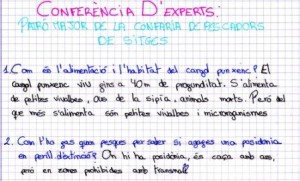 CONFERÈNCIA D'EXPERTS:
PATRÓ MAJOR DE LA CONFRARIA DE PESCADORS
DE SITGES
1. Com és l'alimentació i l'habitat del punxenc? El
viu fins a 40m de profunditat. S'alimenta
de petites bivalbes, ous de la sipia, animals morts. Però del
que més s'alimenta són petites bivalbes i microorganismes
2. Com t'ho fas quan pesques per saber si agafes una posidonia
en perill d'extinció? On hi ha posidònia, és caça amb
però en zones prohibides amb